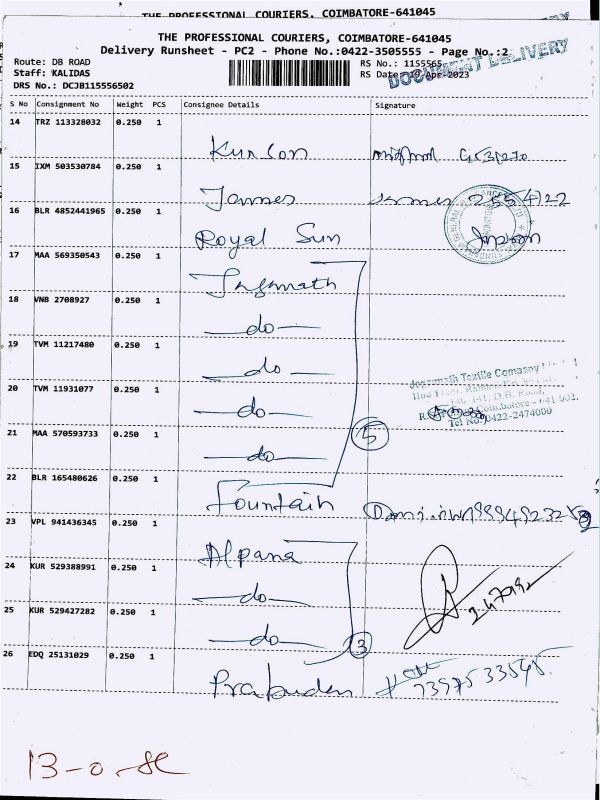 THE PROFESSIONAL COURIERS, COIMBATORE-641045
THE PROFESSIONAL COURIERS, COIMBATORE-641045
Delivery Runsheet - PC2 - Phone No.:0422-3505555 - Page No.:2
DOCUMENT DELIVERY
Route: DB ROAD RS No.: 1155565
Staff: KALIDAS RS Date: 19-Apr-2023
DRS No.: DCJB115556502
S No Consignment No Weight PCS Consignee Details Signature
14 TRZ 113328032 0.250 1
Kurlon
15 IXM 503530784 0.250 1
James James 2554122
16 BLR 4852441965 0.250 1
Royal Sun
17 MAA 569350543 0.250 1
Jagannath
18 VNB 2708927 0.250 1
do
19 TVM 11217480 0.250 1
do
20 TVM 11931077 0.250 1
do
Jagannath Textile Company
D.B. Road,
Coimbatore - 641 002.
Tel No: 0422-2474000
21 MAA 570593733 0.250 1
do
5
22 BLR 165480626 0.250 1
Fountain
23 VPL 941436345 0.250 1
Alpana
24 KUR 529388991 0.250 1
do
25 KUR 529427282 0.250 1
do
3
26 EDQ 25131029 0.250 1
Prabuden
13-0-